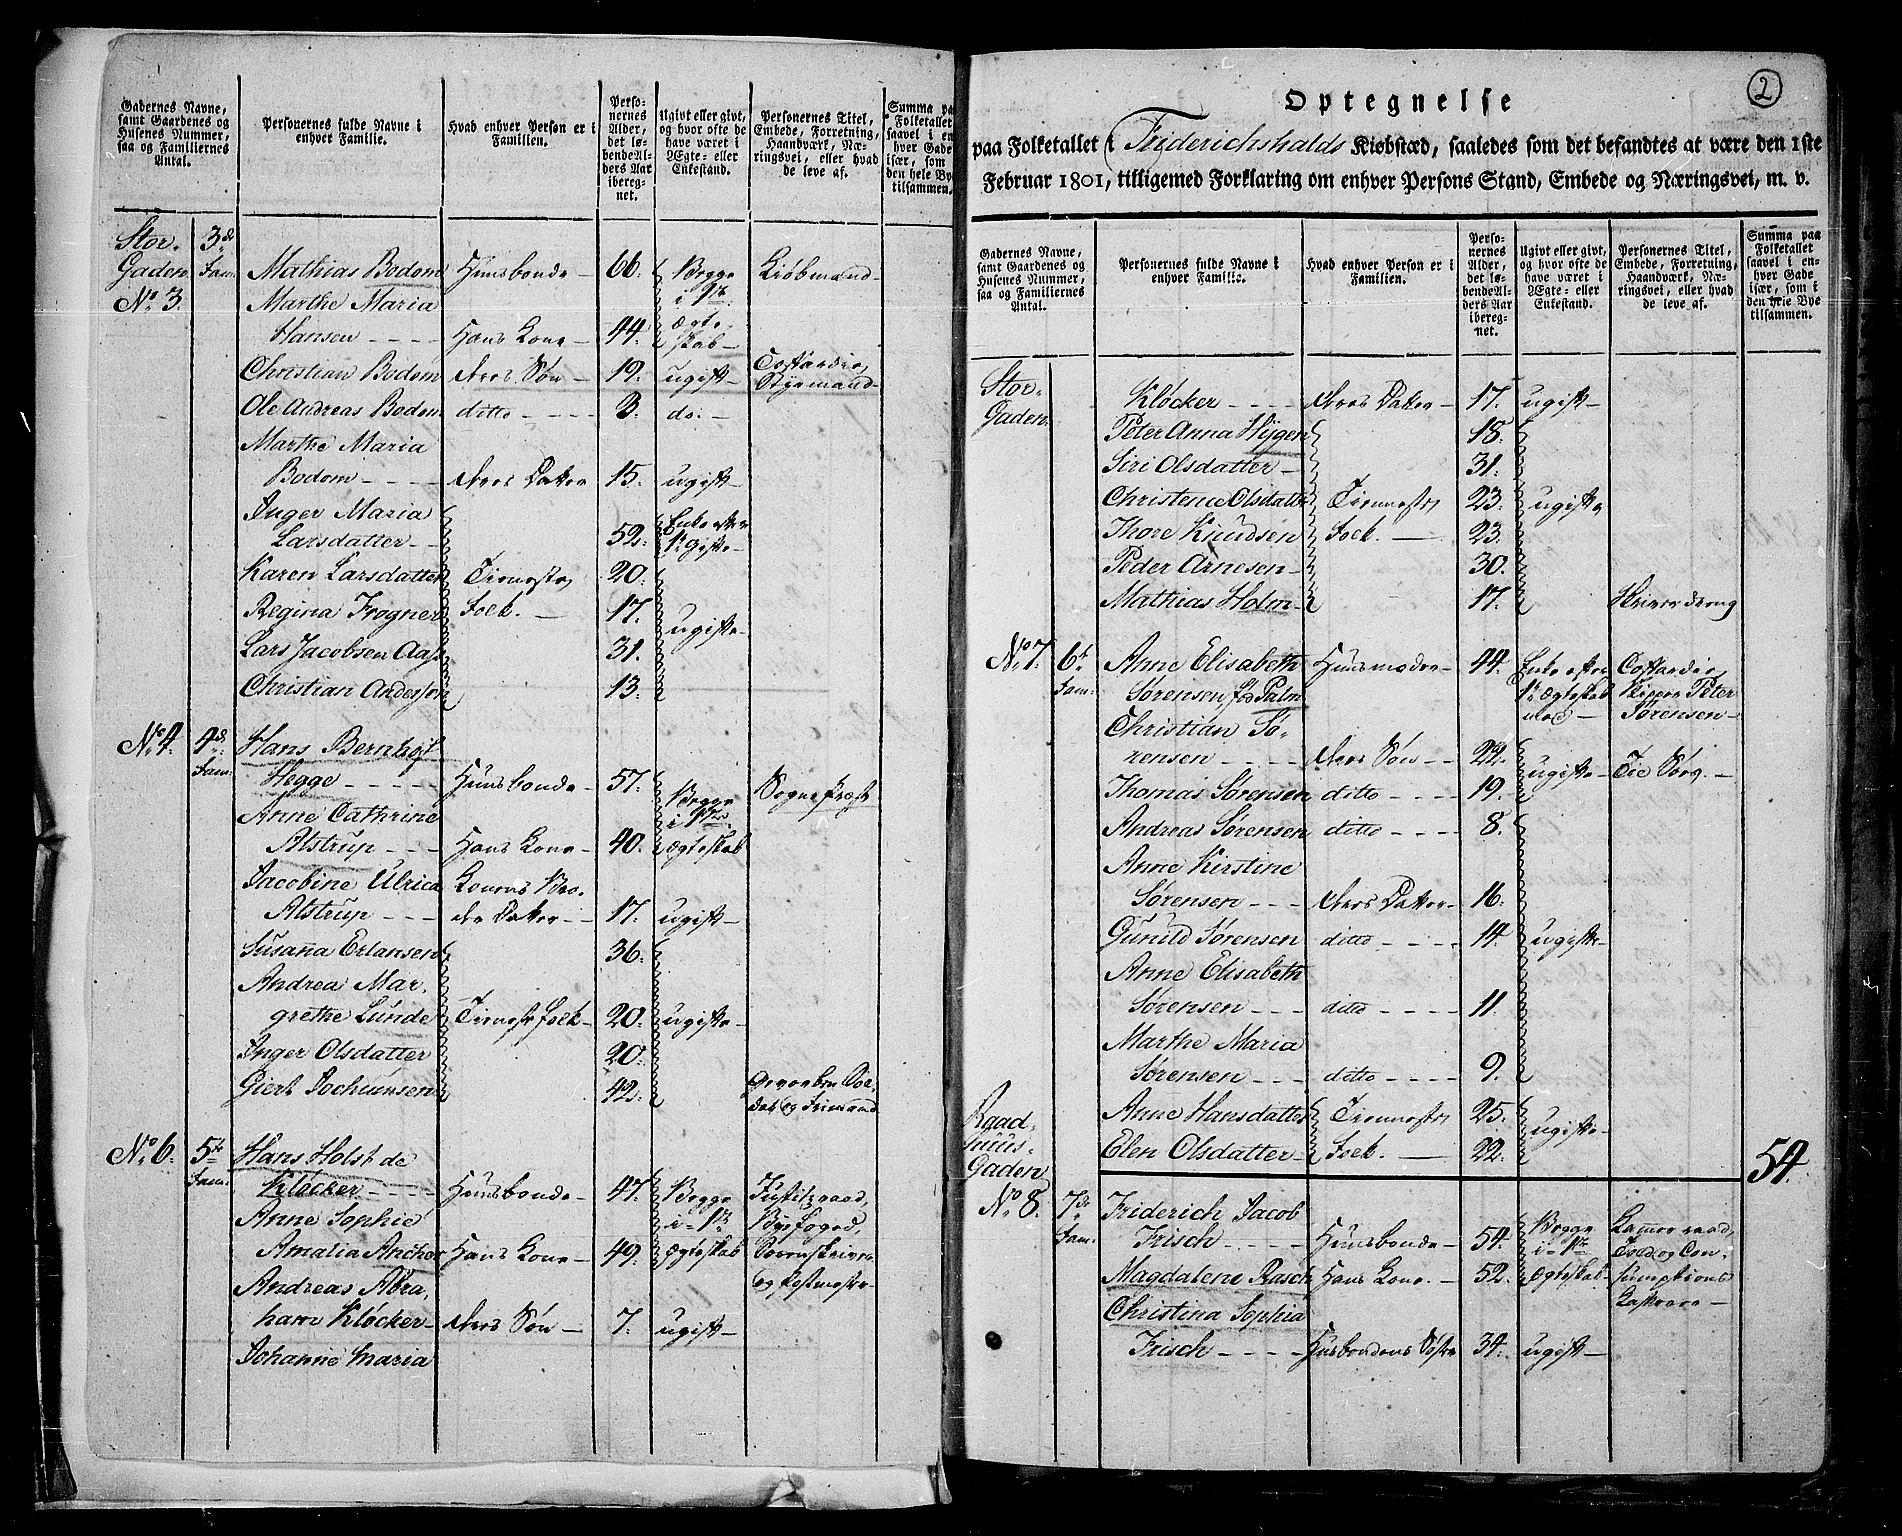 Gadernes Navne, samt Gaardenes og Husenes Nummer, saa og Familiernes Antal.
Personernes fulde Navne i enhver Familie.
Hvad enhver Person er i Familien.
Personernes Alder, det løbende Alders Aar iberegnet.
Ugivt eller givt, og hvor ofte de have været i Ægte- eller Enkestand.
Personernes Titel, Embede, Forretning, Haandværk, Næringsvei, eller hvad de leve af.
Summa paa Folketallet saavel i enhver Gade især, som i den hele Bye tilsammen.
Stor- 3de
Gaden Fam: Mathias Bodom Huusbonde 66. Begge Kiøbmand
No 3. Marthe Maria i 1ste
Hansen Hans Kone 44. ægte-
skab
Christian Bodom deres Søn 19. ugift Coffardie
Styrmand
Ole Andreas Bodom ditto 3. do:
Marthe Maria
Bodom deres Datter 15. ugift
Inger Maria
Larsdatter 52. Enke efter
1te Gifte
Karen Larsdatter Tieneste 20.
Regina Frogner Folk. 17. ugifte
Lars Jacobsen Aas 31.
Christian Anderson 13.
No 4. 4de Hans Bernhoft
Fam: Hegge Huusbonde 57. Begge Sognepræst
Anne Cathrine i 1ste
Alstrup Hans Kone 40. ægteskab
Jacobine Ulrica Konens Bro-
Alstrup der Datter 17. ugift
Susanna Erlansen 36.
Andrea Mar-
grethe Lunde Tieneste Folk 20. ugifte
Inger Olsdatter 20.
Giert Jochumsen 42.
No 6. 5te Hans Holst de
Fam: Kløcker Huusbonde 47. Begge Justitzraad,
Anne Sophie i 1ste Byefoged,
Amalia Ancher Hans Kone 49. ægteskab Sorenskriver
og Postmester
Andreas Abra-
ham Kløcker deres Søn 7. ugift
Johanne Maria
2
Optegnelse
paa Folketallet i Friderichshalds Kiøbstæd, saaledes som det befandtes at være den 1ste
Februar 1801, tilligemed Forklaring om enhver Persons Stand, Embede og Næringsvei, m. v.
Gadernes Navne, samt Gaardenes og Husenes Nummer, saa og Familiernes Antal.
Personernes fulde Navne i enhver Familie.
Hvad enhver Person er i Familien.
Personernes Alder, det løbende Alders Aar iberegnet.
Ugivt eller givt, og hvor ofte de have været i Ægte- eller Enkestand.
Personernes Titel, Embede, Forretning, Haandværk, Næringsvei, eller hvad de leve af.
Summa paa Folketallet saavel i enhver Gade især, som i den hele Bye tilsammen.
Stor- Kløcker deres Datter 17. ugift
Gaden Peter Anna Hÿgen 18.
Siri Olsdatter 31.
Christence Olsdatter Tieneste 23. ugifte
Thore Knudsen Folk. 23.
Peder Arnesen 30.
Mathias Holm 17. Skriverdreng
No 7. 6te Anne Elisabeth Huusmoder 44. Enke efter Coffardie
Fam: Sørensen fød Palm 1te ægteskab Skipper Peter
Christian Sø- med Sørensen
rensen deres Søn 22. ugifte Til Søes.
Thomas Sørensen ditto 19.
Andreas Sørensen ditto 8.
Anne Kirstine
Sørensen deres Datter 16.
Gunild Sørensen ditto 14. ugifte
Anne Elisabeth
Sørensen ditto 11
Marthe Maria
Sørensen ditto 9.
Raad- Anne Hansdatter Tieneste 25. ugifte
huus- Elen Olsdatter Folk. 22.
Gaden 54.
No 8. 7de Friderich Jacob
Fam: Frisch Huusbonde 54. Begge Kammerraad,
i 1ste Told og Con-
Magdalene Rasch Hans Kone. 52. ægteskab sumptions
Christina Sophia Kasserer
Frisch Huusbondens Søster 34. ugift